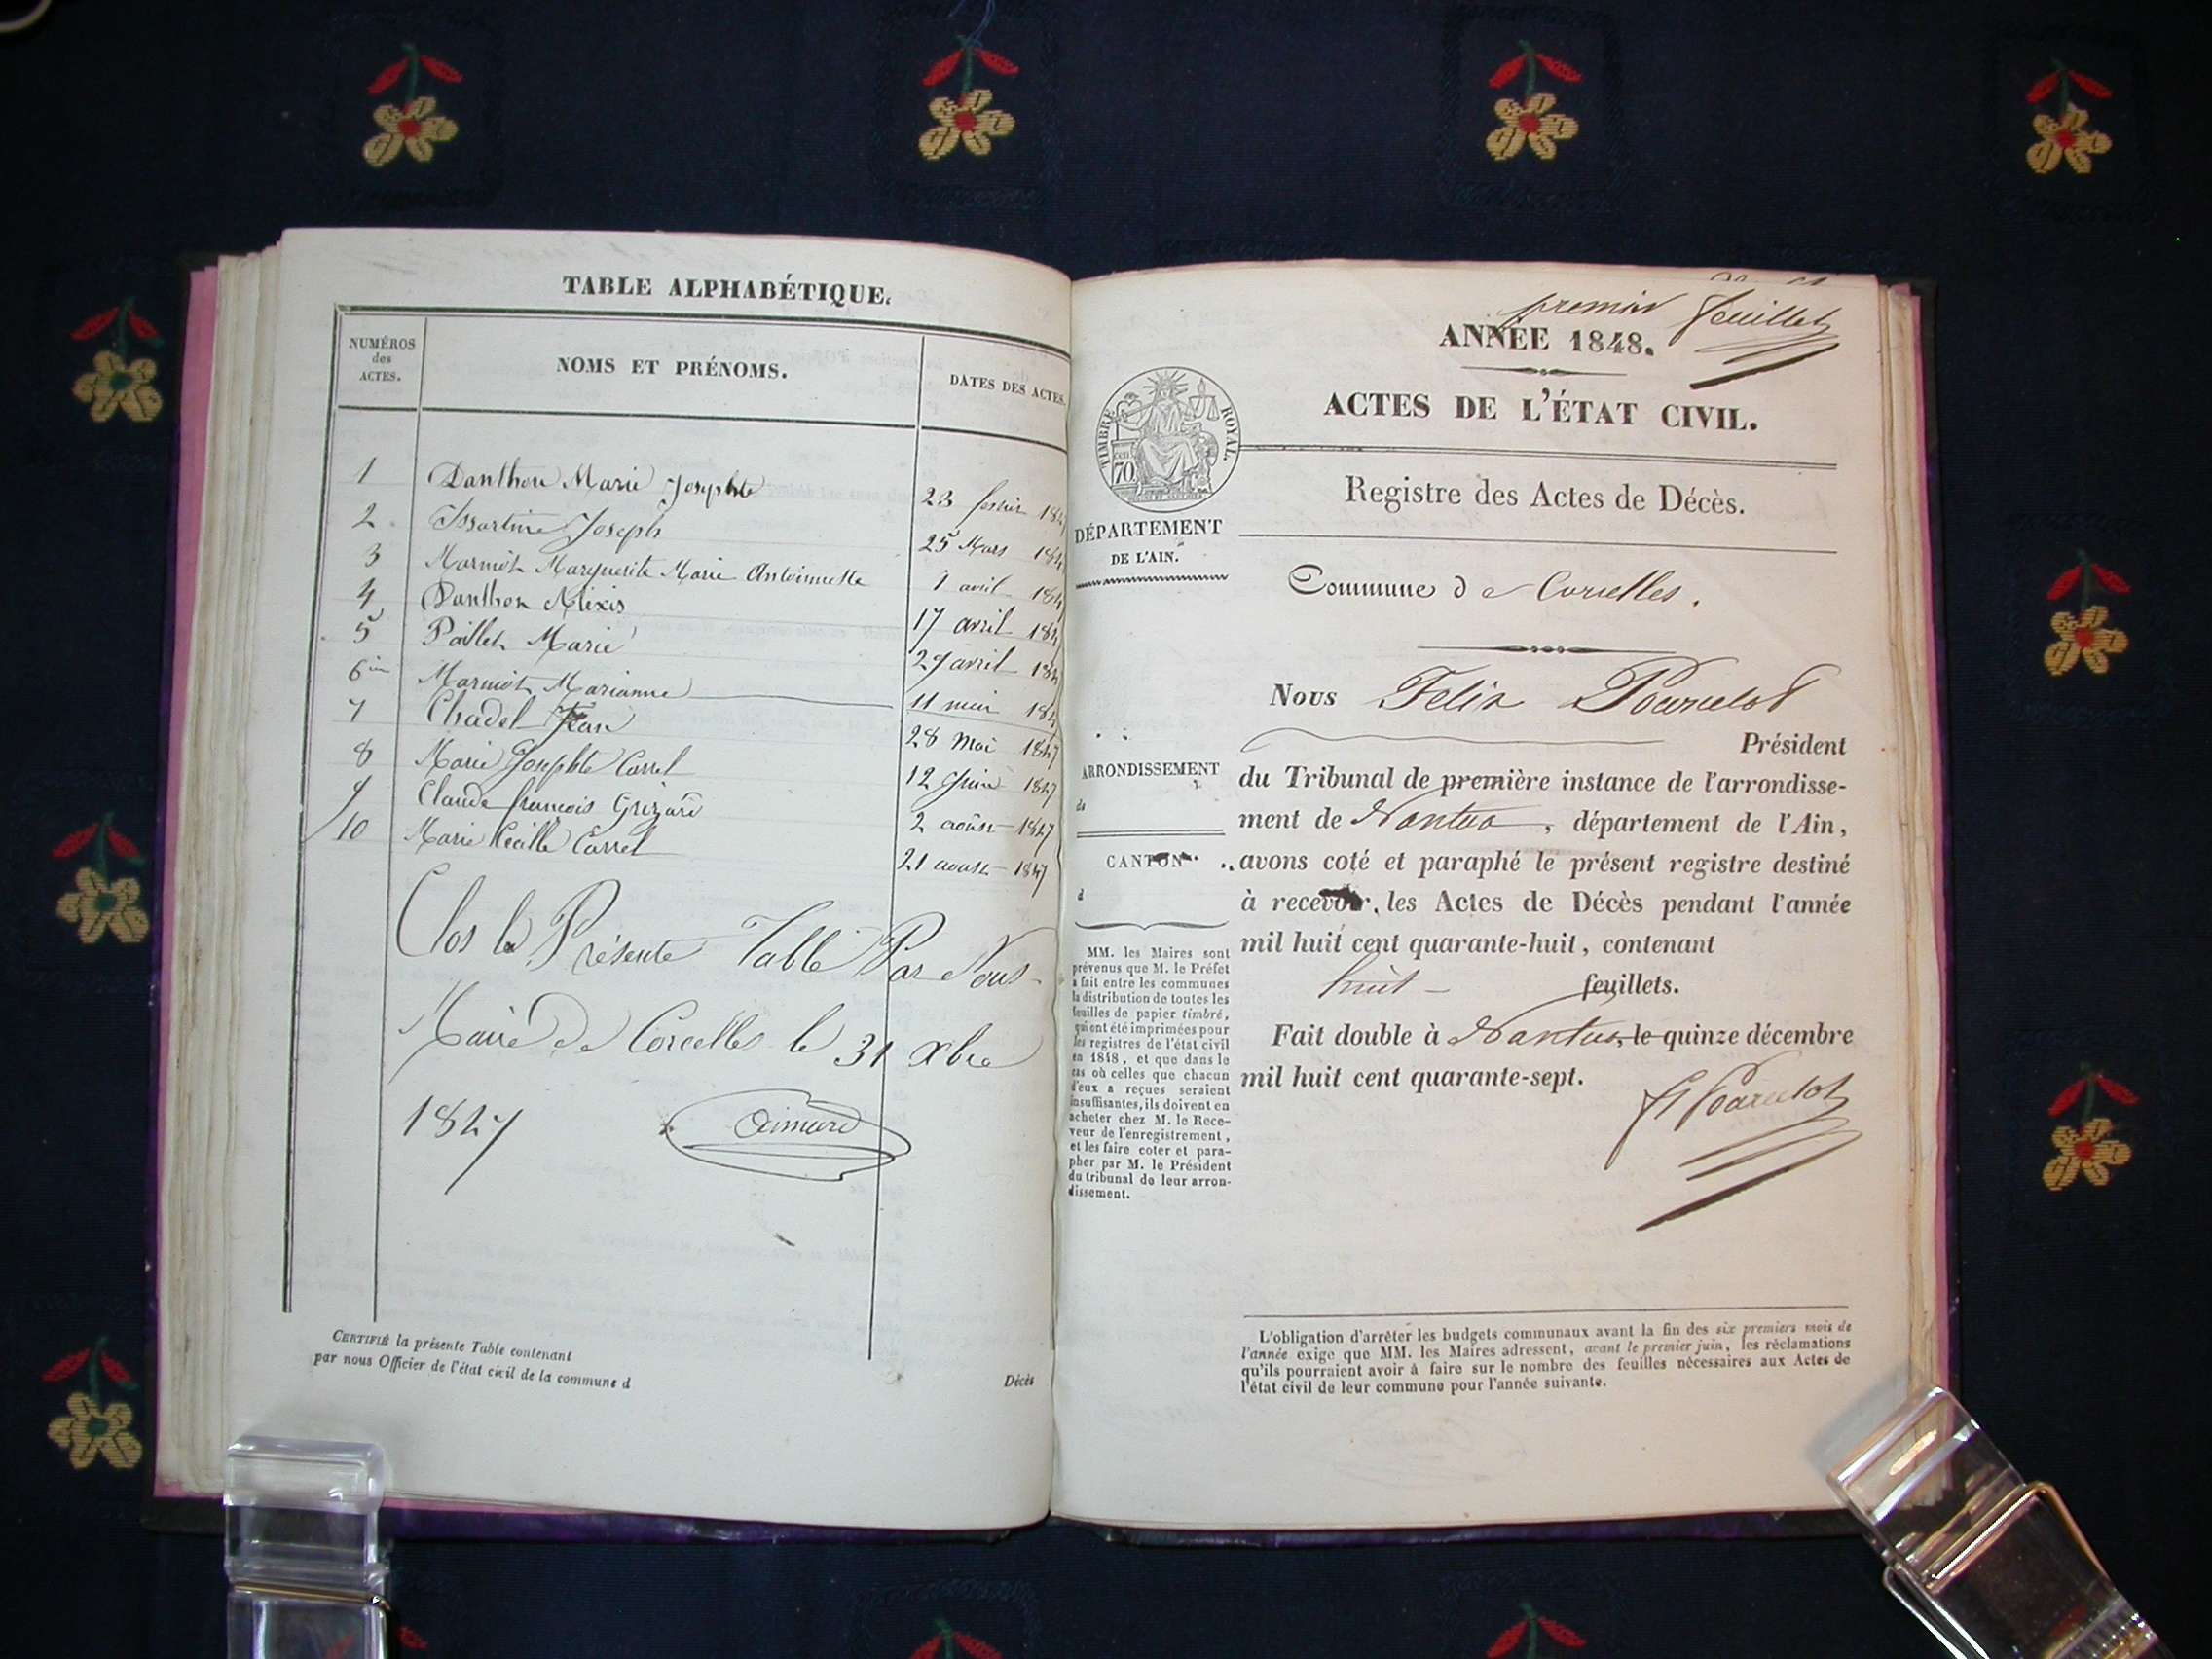 TABLE ALPHABÉTIQUE.
NUMÉROS
des
ACTES.
NOMS ET PRÉNOMS.
DATES DES ACTES.
1 Danthon Marie Josephte 23 fevrier 184
2 Issartine Joseph 25 Mars 184
3 Marmot Marguerite Marie Antoinette 1 avril 184
4 Danthon Alexis 17 avril 184
5 Paillet Marie 29 avril 184
6 Marmot Marianne 11 mai 184
7 Chadel Jean 28 Mai 1847
8 Marie Josephte Carrel 12 Juin 1847
9 Claude françois Grizard 2 août 1847
10 Marie Carrel 21 aoust 1847
Clos la Présente Table Par Nous
Maire de Corcelles le 31 Xbre
1847 Aimard
CERTIFIÉ la présente Table contenant
par nous Officier de l'état civil de la commune d
Décès
premier feuillet
ANNÉE 1848.
ACTES DE L'ÉTAT CIVIL.
TIMBRE ROYAL.
70
Registre des Actes de Décès.
DÉPARTEMENT
DE L'AIN.
Commune de Corcelles.
Nous Felix Pourcelot
Président
ARRONDISSEMENT
de
CANTON
d
du Tribunal de première instance de l'arrondisse-
ment de Nantua, département de l'Ain,
avons coté et paraphé le présent registre destiné
à recevoir les Actes de Décès pendant l'année
mil huit cent quarante-huit, contenant
huit feuillets.
Fait double à Nantua, le quinze décembre
mil huit cent quarante-sept.
Pourcelot
MM. les Maires sont
prévenus que M. le Préfet
a fait entre les communes
la distribution de toutes les
feuilles de papier timbré,
qui ont été imprimées pour
les registres de l'état civil
en 1848, et que dans le
cas où celles que chacun
d'eux a reçues seraient
insuffisantes, ils doivent en
acheter chez M. le Rece-
veur de l'enregistrement,
et les faire coter et para-
pher par M. le Président
du tribunal de leur arron-
dissement.
L'obligation d'arrêter les budgets communaux avant la fin des six premiers mois de
l'année exige que MM. les Maires adressent, avant le premier juin, les réclamations
qu'ils pourraient avoir à faire sur le nombre des feuilles nécessaires aux Actes de
l'état civil de leur commune pour l'année suivante.